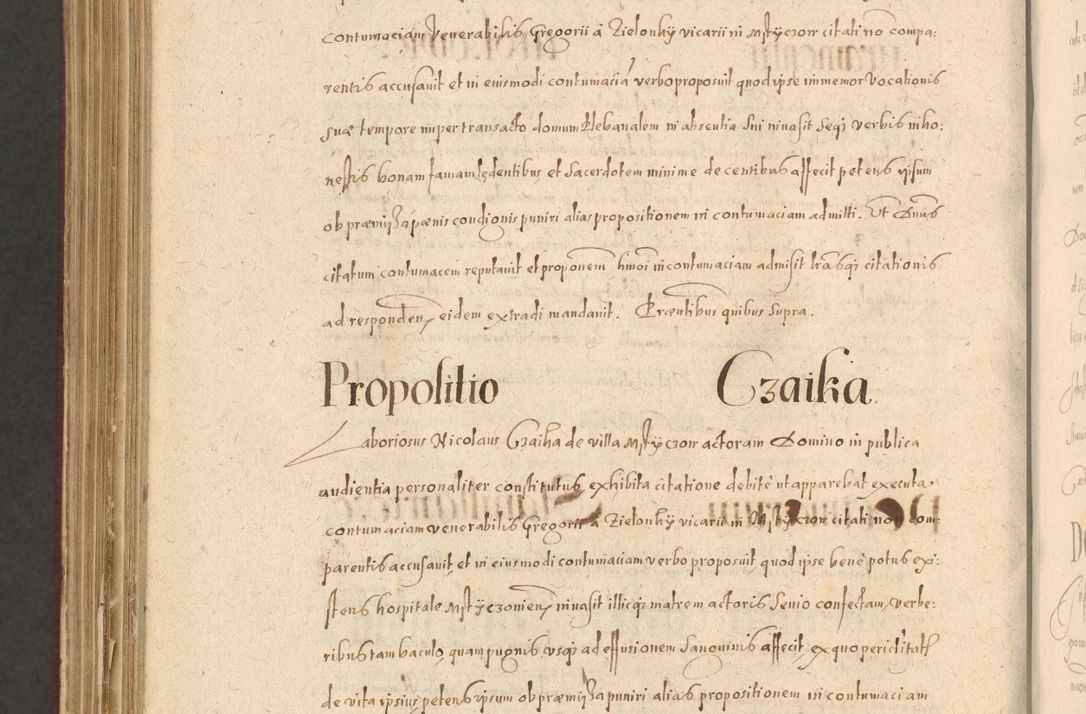 contumaciam Venerabilis Gregorii à Zielonky vicarii in Mstyczow citati no compa:
rentis accusauit et in eiusmodi contumacia verbo proposuit quod ipse inmemor Vocationis
suæ tempore nuper transacto domum Plebanalem in absentia sui inuasit seqȝ verbis inho:
nestis bonam famam lędentibus et Sacerdotem minime decentibus affecit petens ipsum
ob præmissa pænis condignis puniri alias propositionem in contumaciam admitti. Vt Dnus
citatum contumacem reputauit et proponem hmoi in contumaciam admisit lrasqȝ citationis
ad responden eidem extradi mandauit. Præntibus quibus supra.
Propositio Czaika.
Laboriosus Nicolaus Czaika de villa Mstyczow actoram Domino in publica
audientia personaliter constitutus exhibita citatione debitè ut apparebat executa,
contumaciam venerabilis Gregorii à Zielonky vicarii in Mstyczow citati non com:
parentis accusauit et in eiusmodi contumaciam verbo proposuit quod ipse benè potus exi:
stens hospitale Mstyczouien inuasit illicqȝ matrem actoris senio confectam, verbe:
ribus tam baculo quam pugnis usqȝ ad effusionem sanguinis affecit ex quo periclitatr
de vita ipsius petens ipsum ob præmissa puniri alias propositionem in contumaciam